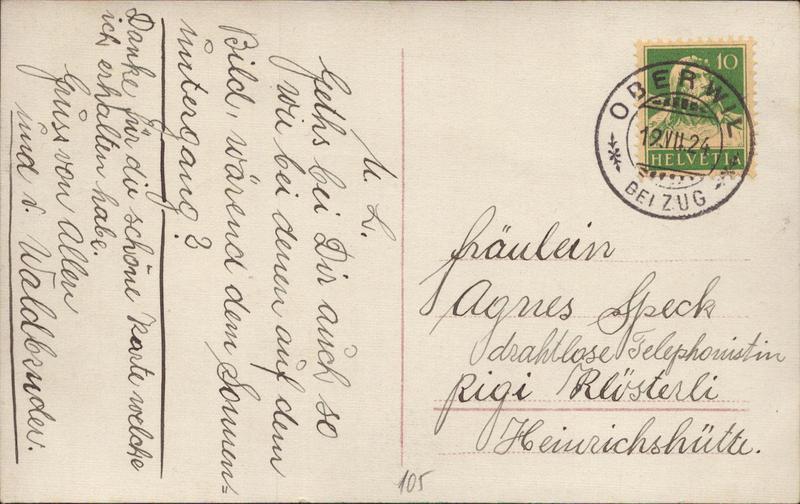 M. L.
Geths bei Dir auch so
wie bei denen auf dem
Bild, wärend dem Sonnen=
untergang?
Danke für die schöne Karte welche
ich erhalten habe.
Gruss von Allen
und v. Waldbruder.
10
HELVETIA
OBERWIL
19.VII.24
BEI ZUG
Fräulein
Agnes Speck
drahtlose Telephonistin
Rigi Klösterli
Heinrichshütte.
105